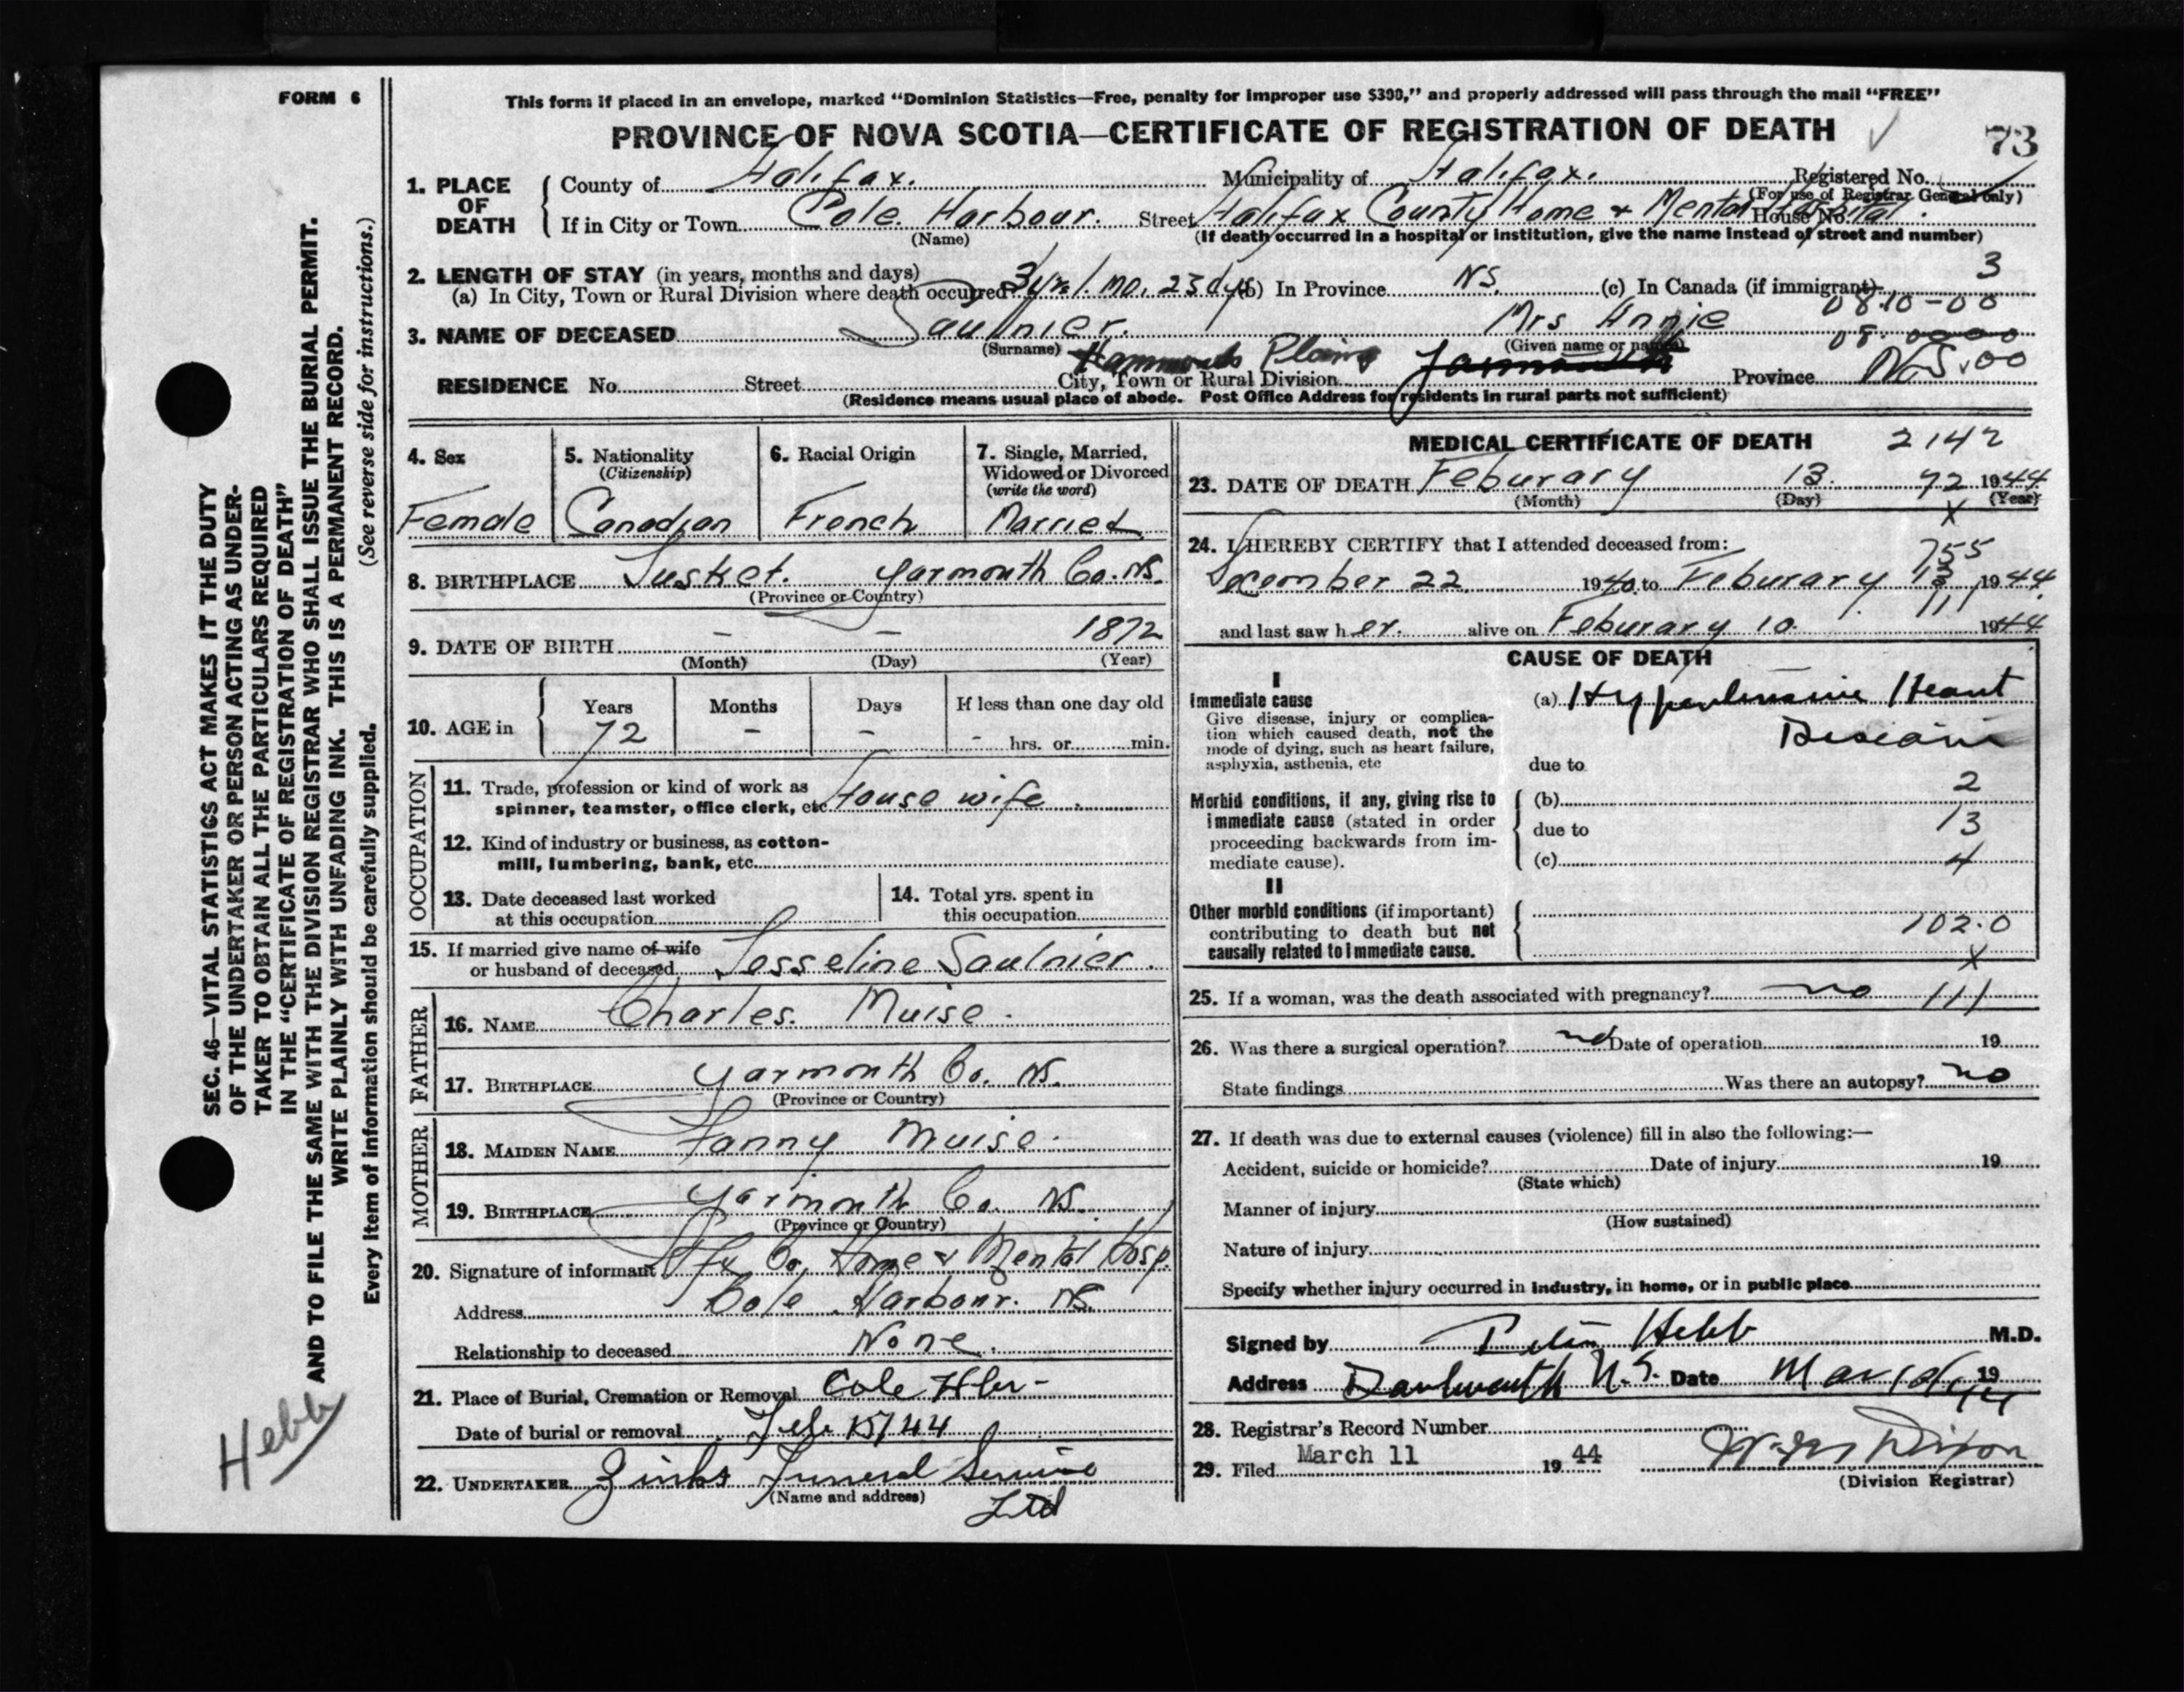 FORM 6
This form if placed in an envelope, marked “Dominion Statistics—Free, penalty for improper use $300,” and properly addressed will pass through the mail “FREE”
PROVINCE OF NOVA SCOTIA—CERTIFICATE OF REGISTRATION OF DEATH
73
1. PLACE OF DEATH
County of Halifax. Municipality of Halifax. Registered No.
(For use of Registrar General only)
If in City or Town Cole Harbour. Street Halifax County Home & Mental Hospital. House No.
(Name) (If death occurred in a hospital or institution, give the name instead of street and number)
2. LENGTH OF STAY (in years, months and days) 3
(a) In City, Town or Rural Division where death occurred 3 yrs 1 mo. 23 dys (b) In Province NS. (c) In Canada (if immigrant)
08.10-00
3. NAME OF DECEASED Saulnier. Mrs Annie
(Surname) (Given name or names)
Hammonds Plains
RESIDENCE No. Street City, Town or Rural Division Yarmouth Province N.S. 00
(Residence means usual place of abode. Post Office Address for residents in rural parts not sufficient)
4. Sex
Female
5. Nationality
(Citizenship)
Canadian
6. Racial Origin
French
7. Single, Married,
Widowed or Divorced
(write the word)
Married
8. BIRTHPLACE Tusket. Yarmouth Co. NS.
(Province or Country)
9. DATE OF BIRTH – – 1872
(Month) (Day) (Year)
10. AGE in
Years Months Days If less than one day old
72 – – - hrs. or min.
OCCUPATION
11. Trade, profession or kind of work as
spinner, teamster, office clerk, etc House wife.
12. Kind of industry or business, as cotton-
mill, lumbering, bank, etc.
13. Date deceased last worked
at this occupation
14. Total yrs. spent in
this occupation
15. If married give name of wife
or husband of deceased Josseline Saulnier.
FATHER
16. NAME Charles. Muise.
17. BIRTHPLACE Yarmouth Co. NS.
(Province or Country)
MOTHER
18. MAIDEN NAME Fanny Muise.
19. BIRTHPLACE Yarmouth Co. NS.
(Province or Country)
20. Signature of informant Hfx Co. Home & Mental Hosp.
Address Cole Harbour. NS.
Relationship to deceased None.
21. Place of Burial, Cremation or Removal Cole Hbr-
Date of burial or removal Feb 15/44
22. UNDERTAKER Zinks Funeral Service
(Name and address) Ltd
MEDICAL CERTIFICATE OF DEATH 2142
23. DATE OF DEATH Feburary 13. 72 1944
(Month) (Day) (Year)
x
24. I HEREBY CERTIFY that I attended deceased from:
755
December 22 1940 to Feburary 13, 1944.
111
and last saw her. alive on Feburary 10. 1944
CAUSE OF DEATH
I
Immediate cause
Give disease, injury or complica-
tion which caused death, not the
mode of dying, such as heart failure,
asphyxia, asthenia, etc
(a) Hypertensive Heart
Disease
due to
Morbid conditions, if any, giving rise to
immediate cause (stated in order
proceeding backwards from im-
mediate cause).
(b) 2
due to 13
(c) 4
II
Other morbid conditions (if important)
contributing to death but not
causally related to immediate cause.
102.0
x
25. If a woman, was the death associated with pregnancy? no 111
26. Was there a surgical operation? no Date of operation 19
State findings Was there an autopsy? no
27. If death was due to external causes (violence) fill in also the following:—
Accident, suicide or homicide? Date of injury 19
(State which)
Manner of injury
(How sustained)
Nature of injury
Specify whether injury occurred in industry, in home, or in public place
Signed by Hebb M.D.
Address Dartmouth N.S. Date Mar 10/ 19 44
28. Registrar's Record Number
29. Filed March 11 19 44 Dixon
(Division Registrar)
SEC. 46—VITAL STATISTICS ACT MAKES IT THE DUTY
OF THE UNDERTAKER OR PERSON ACTING AS UNDER-
TAKER TO OBTAIN ALL THE PARTICULARS REQUIRED
IN THE “CERTIFICATE OF REGISTRATION OF DEATH”
AND TO FILE THE SAME WITH THE DIVISION REGISTRAR WHO SHALL ISSUE THE BURIAL PERMIT.
WRITE PLAINLY WITH UNFADING INK. THIS IS A PERMANENT RECORD.
Every item of information should be carefully supplied. (See reverse side for instructions.)
Hebb